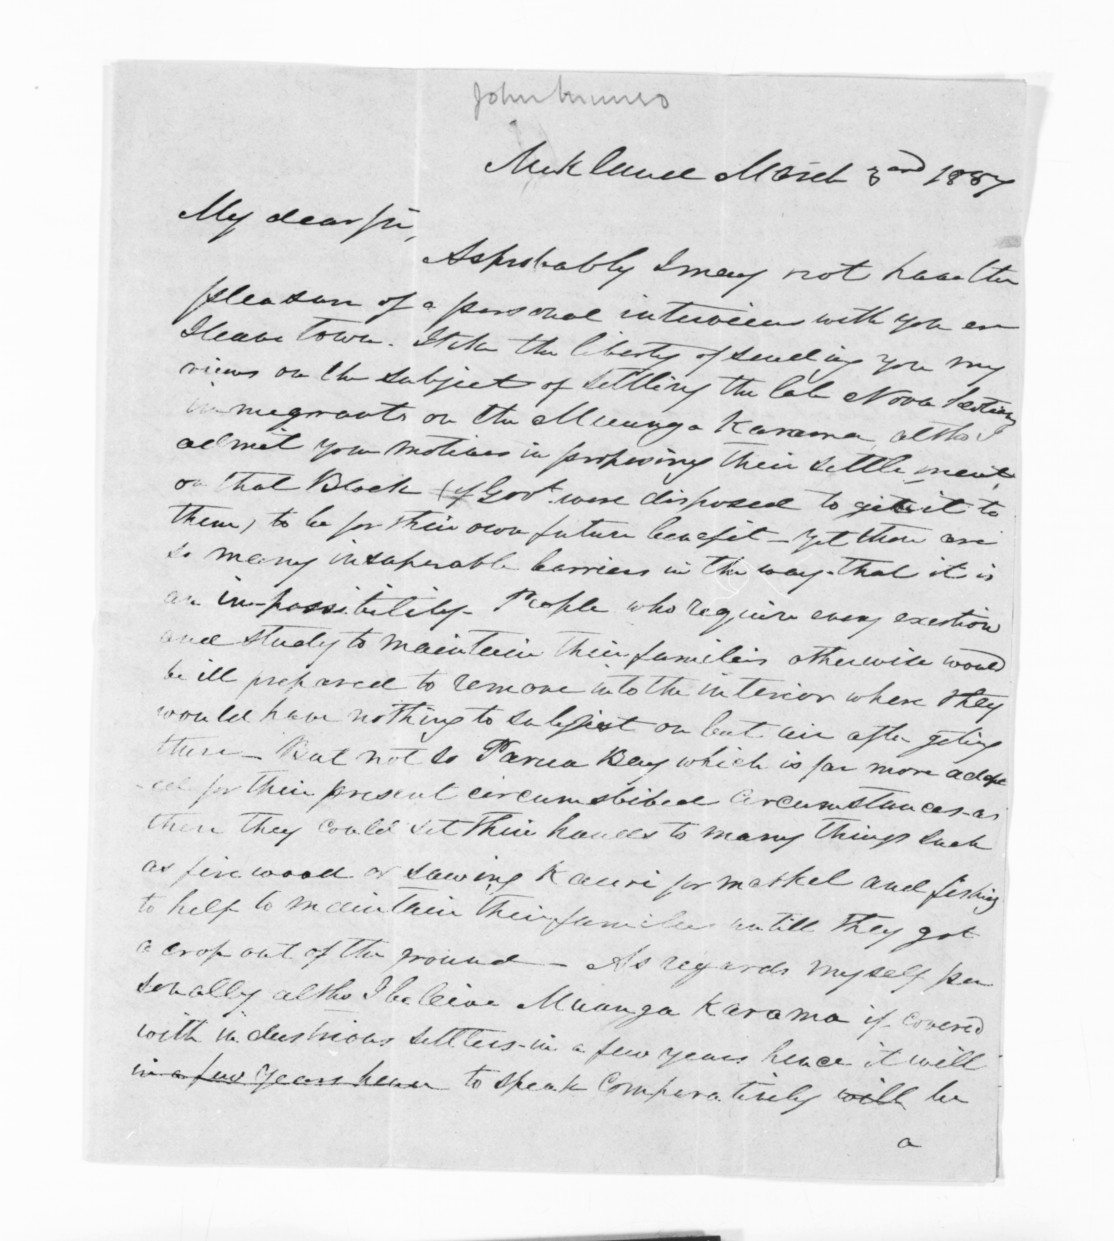 John Munro
Auckland March 3rd 1857
My dear Sir,
As probably I may not have the
pleasure of a personal interview with you ere
I leave town. I take the liberty of sending you my
views on the subject of settling the late Nova Scotian
immegrants on the Muanga Karama, altho I
admit your motives in proposing their settlement
on that Block (if Govt. were disposed to give it to
them) to be for their own future benefit - yet there are
so many insuperable barriers in the way that it is
an impossibility - People who require every exertion
and study to maintain their families otherwise would
be ill prepared to remove into the interior where they
would have nothing to subsist on but air after geting
there - But not so Parua Bay which is far more adapt
-ed for their present circumscribed circumstances as
there they could set their hands to many things such
as fire wood or sawing Kauri for market and fishing
to help to maintain their families untill they got
a crop out of the ground - As regards myself per
sonally altho I beleive Muanga Karama if covered
with industrious settlers in a few years hence it will
in a few years hence to speak Comparatively will be
a